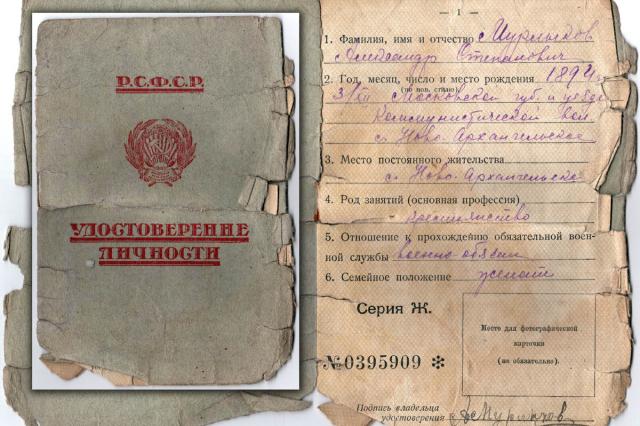 Р.С.Ф.С.Р.
УДОСТОВЕРЕНИЕ
ЛИЧНОСТИ
— 1 —
1. Фамилия, имя и отчество
Александр Степанович
2. Год, месяц, число и место рождения 1894
(по нов. стилю)
3/XII Московской губ. и уезда
Коммунистической вол.
с. Ново-Архангельское
3. Место постоянного жительства
с. Ново-Архангельское
4. Род занятий (основная профессия)
крестьянство
5. Отношение к прохождению обязательной воен-
ной службы военно-обязан
6. Семейное положение женат
Серия Ж.
Место для фотографической
карточки
(не обязательно).
№0395909 ✻
Подпись владельца
удостоверения